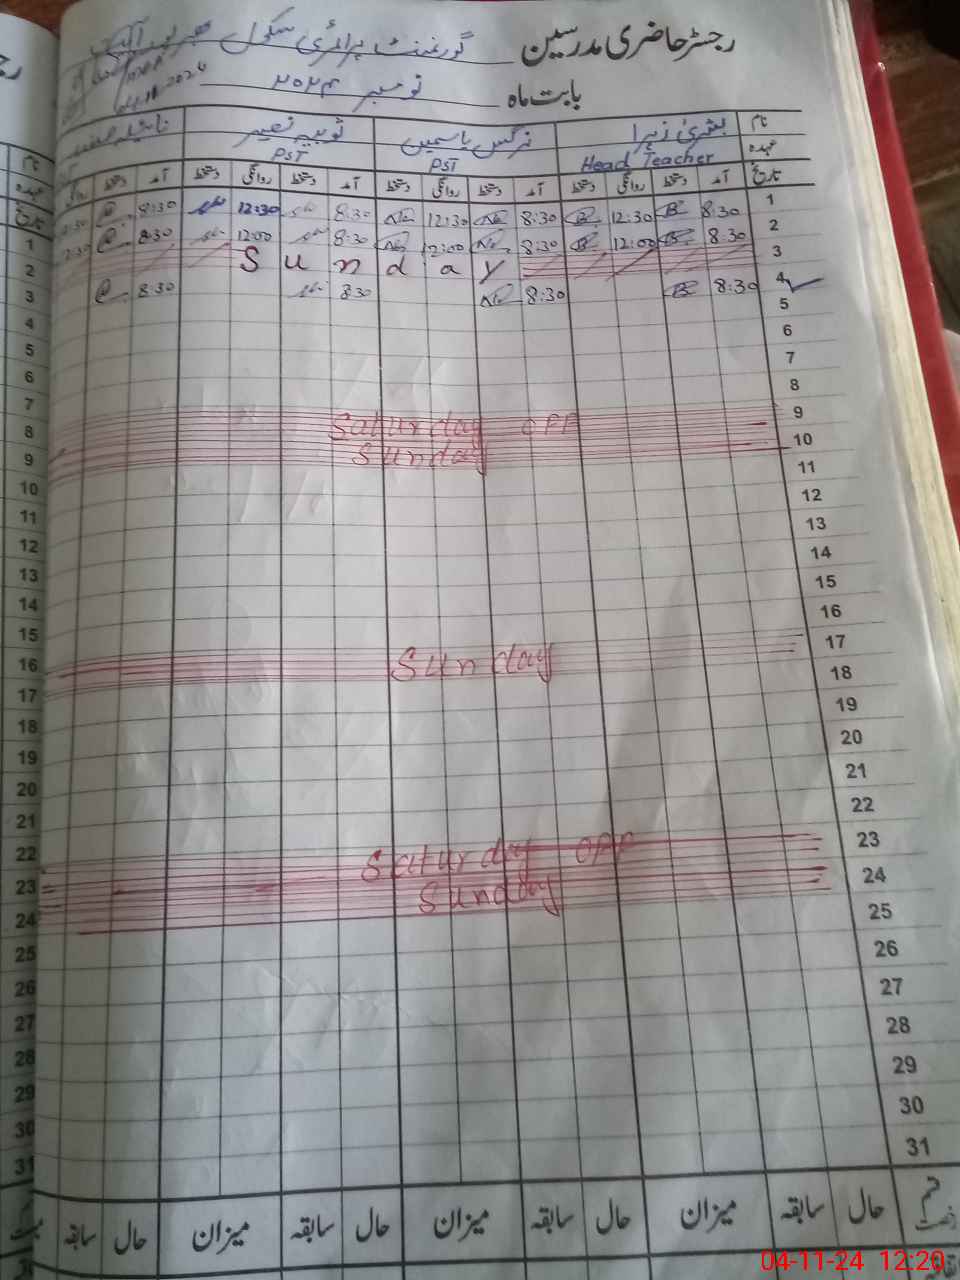 رجسٹر حاضری مدرسین گورنمنٹ پرائمری سکول
بابت ماہ نومبر ۲۰۲۴
04.11.2024
نام بشریٰ زہرا نرگس یاسمین ثوبیہ نصیر
عہدہ Head Teacher PST PST
تاریخ آمد دستخط روانگی دستخط آمد دستخط روانگی دستخط آمد دستخط روانگی دستخط آمد دستخط روانگی
1 8:30 12:30 8:30 12:30 8:30 12:30 8:30
2 8:30 12:00 8:30 12:00 8:30 12:00 8:30
3 Sunday
4 8:30 8:30 8:30 8:30
5
6
7
8
9 Saturday OFF
10 Sunday
11
12
13
14
15
16
17 Sunday
18
19
20
21
22
23 Saturday OFF
24 Sunday
25
26
27
28
29
30
31
حال سابقہ میزان حال سابقہ میزان حال سابقہ میزان حال سابقہ
04-11-24 12:20